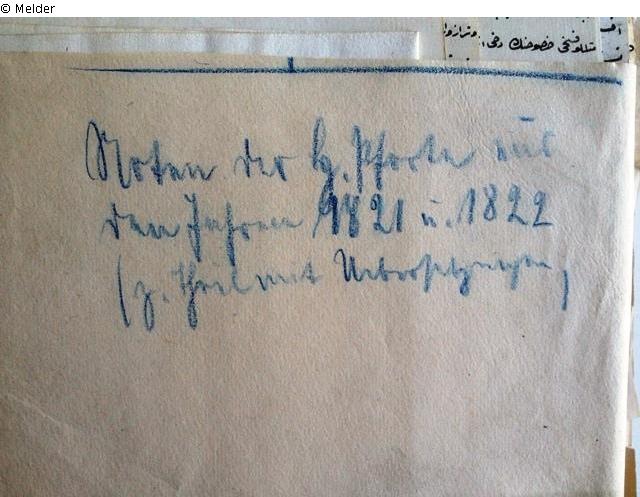 © Melder
Noten der H. Pforte aus
den Jahren 1821 u. 1822
(z. Theil mit Uebersetzungen)